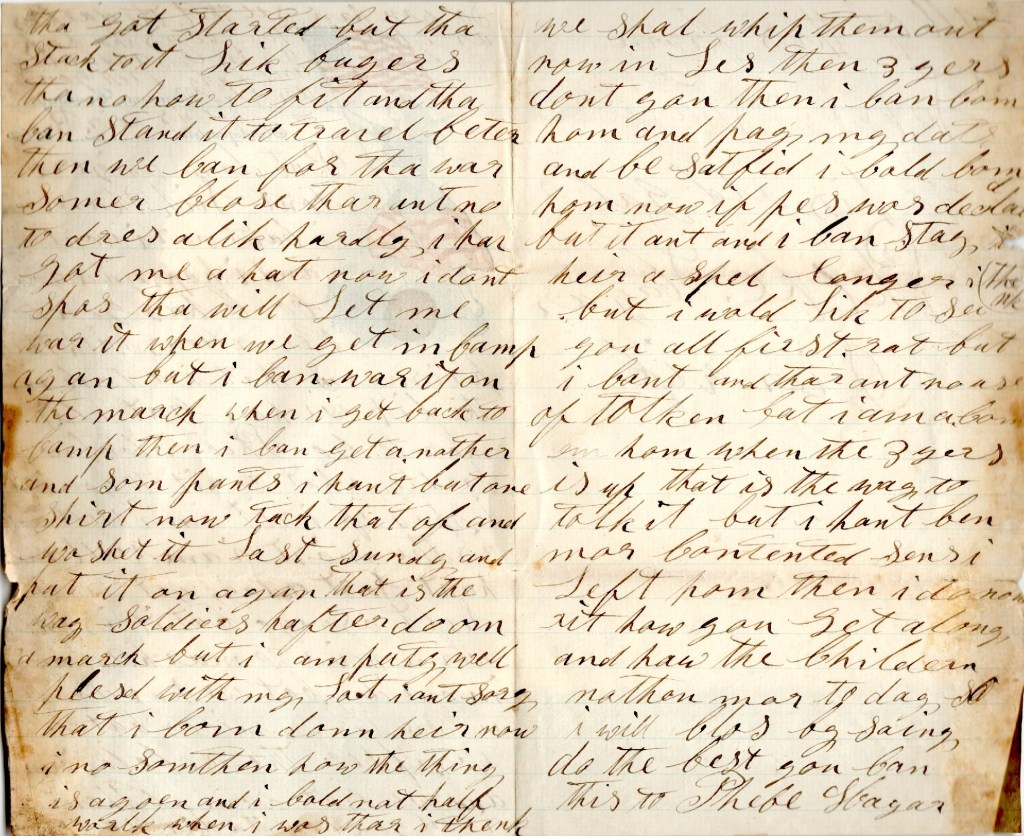 tha got started but tha
stuck to it lik bugers
tha no how to fit and tha
can stand it to travel beter
then we can for tha war
somer close thar ant no
to dres alik hardly i hav
got me a hat now i dont
spos tha will let me
war it when we get in camp
agan but i can war it on
the march when i get back to
camp then i can get a nother
and som pants i hant but one
shirt now tuck that of and
woshet it last sundy and
put it on agan that is the
way soldiers hafter do on
a march but i am puty well
plesd with my lot i ant sory
that i com down heir now
i no somthen how the thing
is agoen and i cold not half
work when i was thar i thenk
we shal whip them out
now in les then 3 yers
dont you then i can com
hom and pay my dats
and be satfid i cold com
hom now if pes wos declar
but it ant and i can stay
heir a spel longer i think
but i wold lik to see
you all first rat but
i cant and thar ant no use
of tolken but i am a com
en hom when the 3 yers
is up that is the way to
tolk it but i hant ben
mor contented sens i
left hom then i do now
rit how you get along
and how the children
nothen mor to day so
i will clos by saing
do the best you can
this to Phebe Hagar